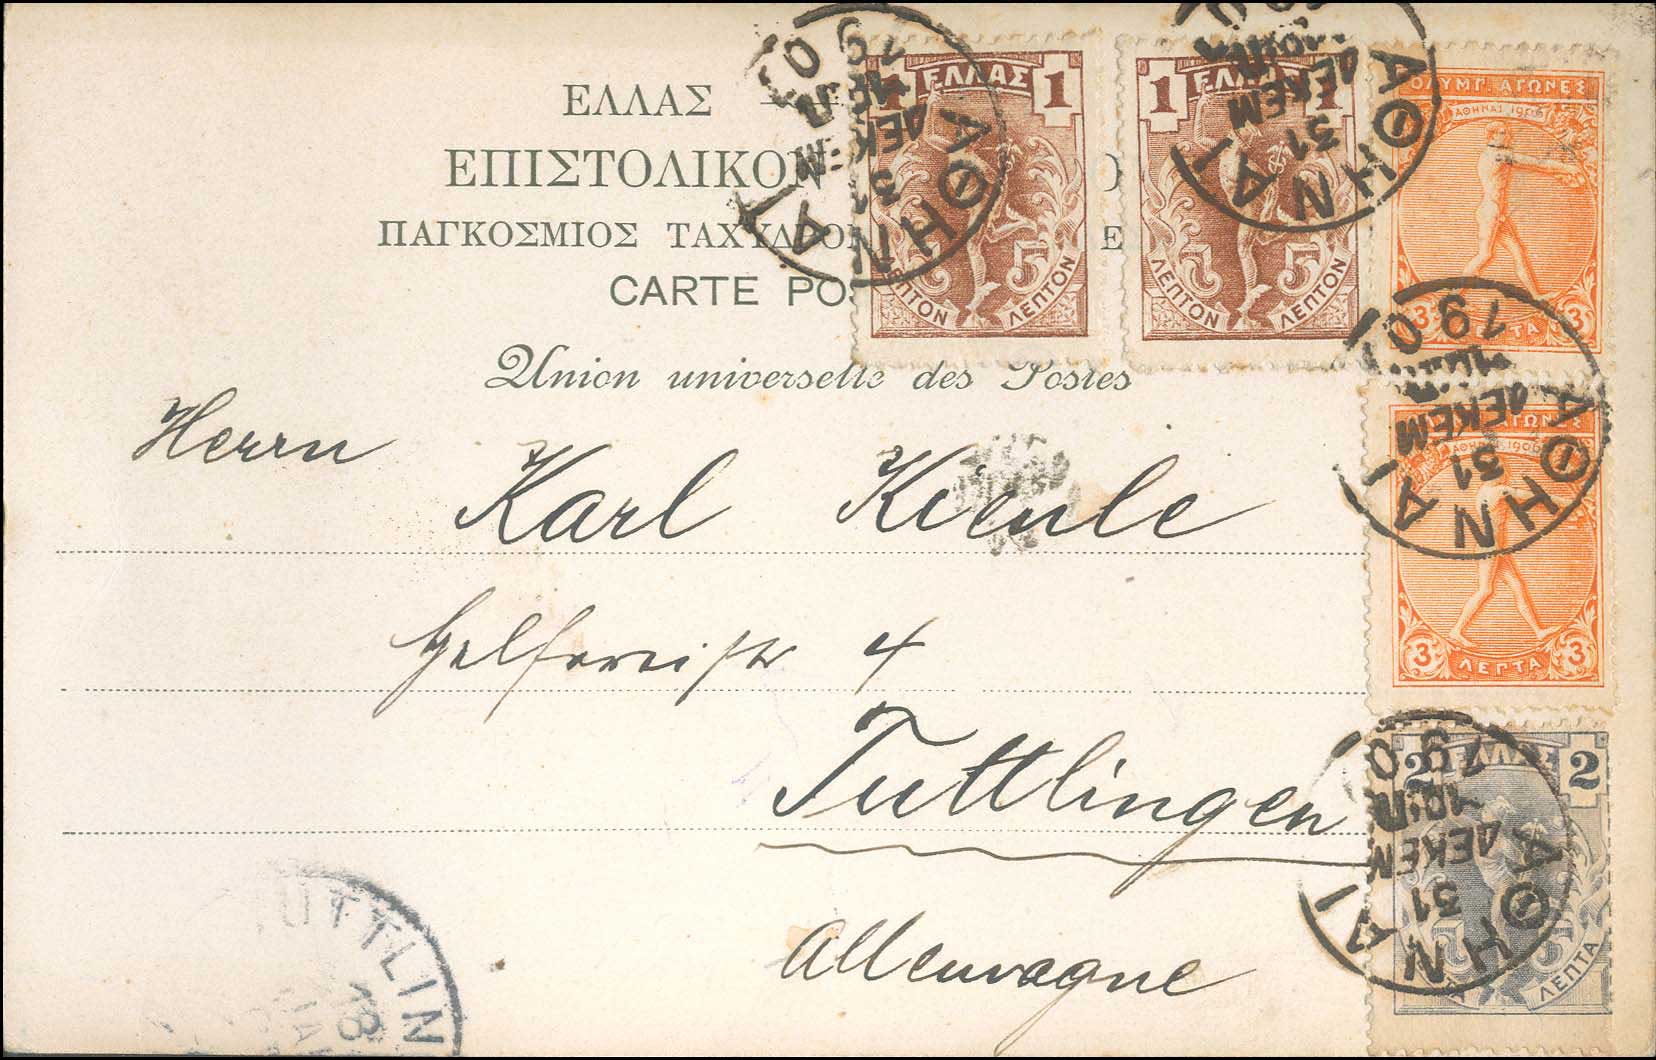 ΕΛΛΑΣ
ΕΠΙΣΤΟΛΙΚΟΝ
ΠΑΓΚΟΣΜΙΟΣ ΤΑΧΥΔΡΟΜ
CARTE POS
Union universelle des Postes
Herrn
Karl Kienle
4
Tuttlingen
Allemagne
1 ΕΛΛΑΣ 1
5 5
ΛΕΠΤΟΝ ΛΕΠΤΟΝ
1 ΕΛΛΑΣ 1
5 5
ΛΕΠΤΟΝ ΛΕΠΤΟΝ
ΟΛΥΜΠ. ΑΓΩΝΕΣ
ΑΘΗΝΑΙ 1906
3 ΛΕΠΤΑ 3
ΑΓΩΝΕΣ
ΑΘΗΝΑΙ 1906
3 ΛΕΠΤΑ 3
2 ΕΛΛΑΣ 2
ΛΕΠΤΑ
ΑΘΗΝΑΙ
31
ΔΕΚΕΜ
190
ΑΘΗΝΑΙ
31
ΔΕΚΕΜ
ΑΘΗΝΑΙ
31
ΔΕΚΕΜ
190
ΑΘΗΝΑΙ
31
ΔΕΚΕΜ
10:Π
190
TUTTLIN
18
JAN